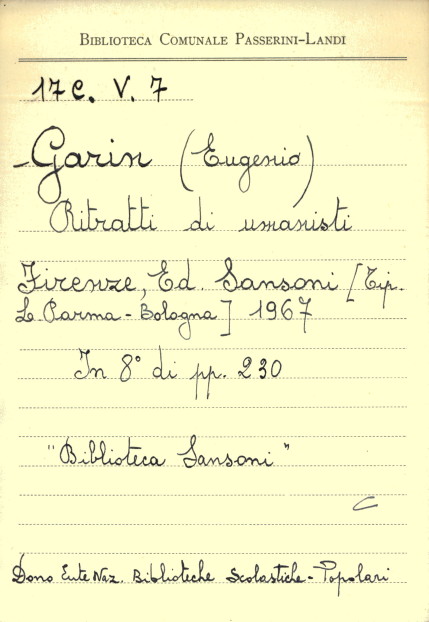 BIBLIOTECA COMUNALE PASSERINI-LANDI
17 C. V. 7
Garin (Eugenio)
Ritratti di umanisti
Firenze, Ed. Sansoni [Tip.
L. Parma - Bologna] 1967
In 8° di pp. 230
"Biblioteca Sansoni"
C
Dono Ente Naz. Biblioteche Scolastiche - Popolari